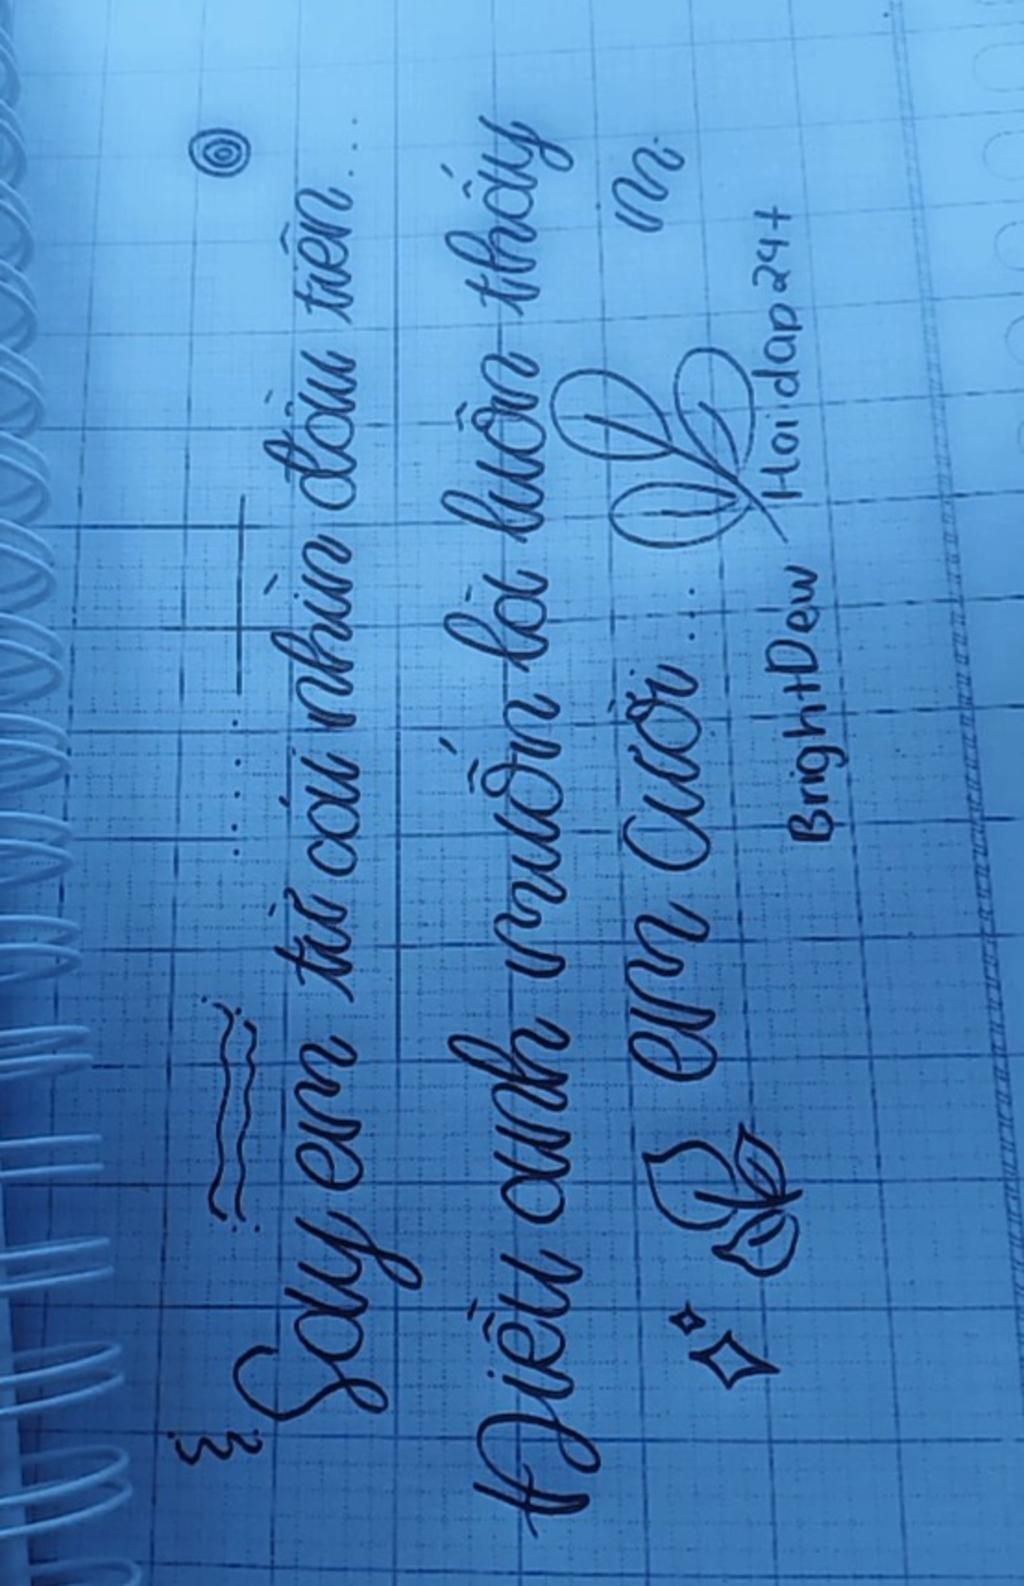 Say em từ cái nhìn đầu tiên...
Điều anh muốn là luôn thấy
em cười...
BrightDew Hoidap24+